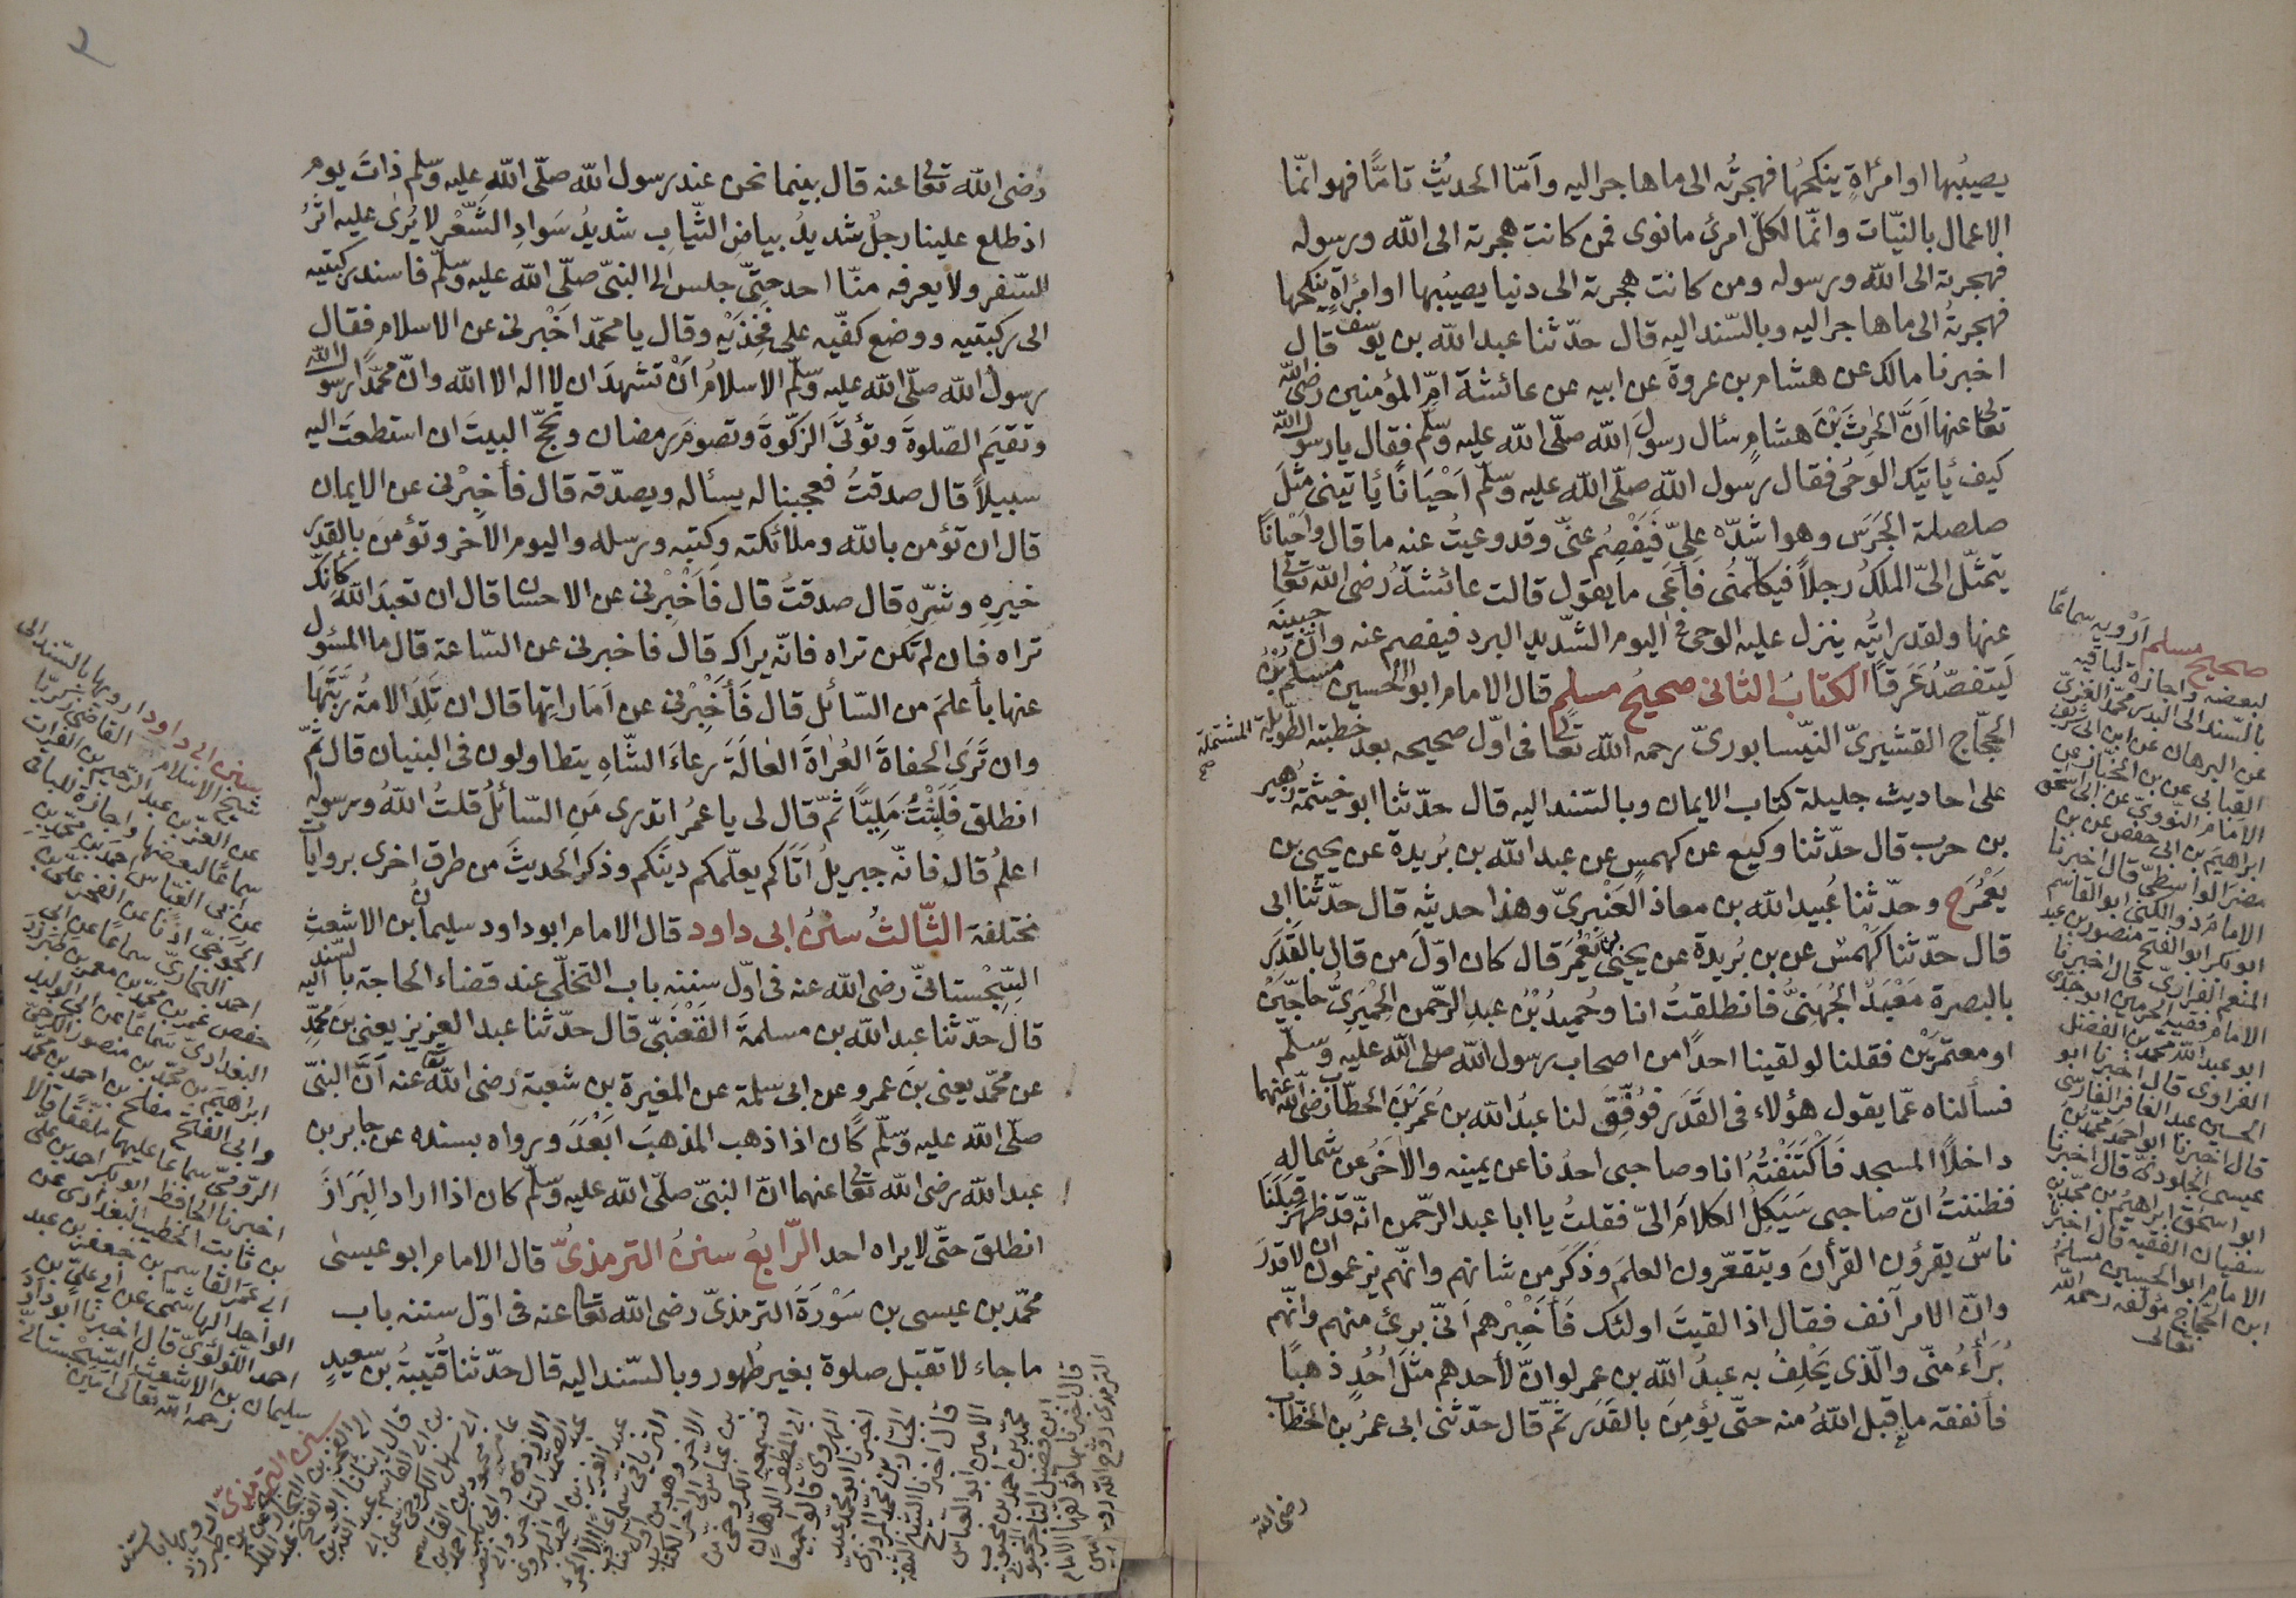 يصيبُها او امرأةٍ ينكحُها فهجرتُه الى ما هاجر اليه وأمّا الحديثُ تامًّا فهو انّما
الاعمال بالنيّات وانّما لكلّ امرئ ما نوى فمن كانت هجرته الى الله ورسوله
فهجرته الى الله ورسوله ومن كانت هجرته الى دنيا يصيبُها او امرأةٍ ينكحها
فهجرتُه الى ما هاجر اليه وبالسّند اليه قال حدّثنا عبد الله بن يوسف قال
اخبرنا مالك عن هشام بن عروةَ عن ابيه عن عائشة امّ المؤمنين رضى الله
تعالى عنها اَنَّ الحٰرِثَ بْنَ هشامٍ سأل رسولَ الله صلّى الله عليه وسلّم فقال يا رسول الله
كيف يأتيك الوحىُ فقال رسول الله صلّى الله عليه وسلّم اَحْيَانًا يأتينى مثلَ
صلصلة الجَرَسِ وهو اشدّه علىّ فيَفْصِم عنّى وقد وعيتُ عنه ما قال واحيانًا
يتمثّل الىّ الملكُ رجلاً فيكلّمنُى فأعى ما يقول قالت عائشةُ رضى الله تعالى
عنها ولقد رايتُه ينزل عليه الوحى فى اليوم الشّديد البرد فيفصم عنه وانّ جبينَه
لَيتفصّدُ عَرَقاً الكتابُ الثانى صحيحُ مسلمٍ قال الامام ابو الحسين مسلم بْنُ
الحجّاج القشيرىّ النّيسابورىّ رحمه الله تعالى فى اوّل صحيحه بعد خطبته الطّويلة المشتملة
على احاديث جليلة كتاب الايمان وبالسّند اليه قال حدّثنا ابو خيثمة زُهير
بن حرب قال حدّثنا وكيع عن كهمسٍ عن عبد الله بن بُريدة عن يحيى بن
يَعْمُرَ ح وحدّثنا عُبيد الله بن معاذ العَنْبرىّ وهذا حديثه قال حدّثنا ابى
قال حدّثنا كَهْمسٌ عن بن بُريدة عن يحيى بن يَعْمُرَ قال كان اوّلَ من قال بالقَدَرِ
بالبصرة مَعْبَدٌ الجُهَنِىُّ فانطلقتُ انا وحُميدُ بْنُ عبدِ الرّحمن الحِمْيَرِىُّ حاجَّيْنِ
او معتمرَيْن فقلنا لو لقينا احدًا من اصحاب رسول الله صلى الله عليه وسلّم
فسألناه عمّا يقول هؤلاء فى القَدَر فوُفِّقَ لنا عبدُ الله بن عُمَرَ بْنِ الخطّاب رضى الله عنهما
داخلاً المسجد فَاْكْتَنَفْتُهُ انا وصاحبى احدُنا عن يمينه والاٰخَرُ عن شماله
فظننتُ انّ صاحبى سَيَكِلُ الكلامَ الىّ فقلتُ يا ابا عبد الرّحمن انّه قد ظهر قِبَلَنَا
ناسٌ يقرؤن القرأنَ ويتقعّرون العلمَ وذكَرَ من شانهم وانّهم يزعمون ان لا قدَرَ
وانّ الامر اُنف فقال اذا لقيتَ اولئك فَأَخْبِرْهم اَنّى برئ منهم وانّهم
بُرَأءُ منّى والّذى يَحْلِفُ به عبدُ الله بن عمر لو انّ لأحدهم مثلَ اُحُدٍ ذهبًا
فأنفقه ما قبل اللهُ منه حتّى يؤمِنَ بالقَدَر ثمّ قال حدّثنى ابى عمرُ بن الخطّاب
رضى الله
صحيح مسلم اَرْويه سماعًا
لبعضه واجازة لباقيه
بالسّند الى البدر محمّد الغزىّ
عن البرهان عن ابن ابى شريف
القبابى عن بن الخبّاز عن
الامام النّووىّ عن ابى اسحق
ابراهيم بن ابى حفص عمر بن
مضر الواسطىّ قال اخبرنا
الامام ذو الكنى ابو القاسم
ابو بكر ابو الفتح منصور بن عبد
المنعم الفراوىّ قال اخبرنا
الامام فقيه الحرمين ابو جدّى
ابو عبد الله محمّد بن الفضل
الفراوى قال اخبرنا ابو
الحسين عبد الغافر الفارسى
قال اخبرنا ابو احمد محمّد بن
عيسى الجلودىّ قال اخبرنا
ابو اسحق ابراهيم بن محمّد بن
سفيان الفقيه قال اخبرنا
الامام ابو الحسين مسلم
ابن الحجّاج مؤلّفه رحمه الله
تعالى
رضى الله تعالى عنه قال بينما نحن عند رسول الله صلّى الله عليه وسلّم ذاتَ يوم
اذ طلع علينا رجلٌ شديدُ بياضِ الثّيابِ شديدُ سَوادِ الشَّعْرِ لا يُرىٰ عليه اثرُ
السّفر ولا يعرفه منّا احد حتّى جلس الى النبىّ صلّى الله عليه وسلّم فاسند ركبتيه
الى ركبتيه ووضع كفّيه على فَخِذَيْهِ وقال يا محمّد اَخْبرنى عن الاسلام فقال
رسولُ الله صلّى الله عليه وسلّم الاسلامُ اَنْ تشهدَ ان لا اله الا الله وانّ محمّدًا رسول الله
وتقيمَ الصّلوةَ وتؤتىَ الزكّوةَ وتصومَ رمضان وتحجّ البيتَ ان استطعتَ اليه
سبيلاً قال صدقتَُ فعجبنا له يسأله ويصدّقه قال فأخبِرْنى عن الايمان
قال ان تؤمن بالله وملائكته وكتبه ورسله واليوم الاٰخر وتؤمنَ بالقدَر
خيرِهِ وشرّهِ قال صدقتَ قال فَأَخْبِرنى عن الاحسان قال ان تعبدَ اللهَ كأنك
تراه فان لم تكن تراه فانّه يراك قال فاخبرنى عن السّاعة قال ما المسئول
عنها بأعلمَ من السّائل قال فَأَخْبِرْنى عن اَمَاراتِها قال ان تَلِدَ الامةُ ربَّتَهَا
وان تَرَى الحفاةَ العُرٰاةَ العٰالَةَ رعاءَ الشّاءِ يتطاولون فى البنيان قال ثمّ
انطلق فَلَبِثْتُ مَلِيًّا ثمّ قال لى يا عمرُ اتدرى مَن السّائلُ قلتُ اللهُ ورسوله
اعلمُ قال فانّه جبريلُ اَتَاكم يعلّمكم دينَكم وذكر الحديثَ من طرق اخرى بروايات
مختلفة الثّالثُ سننُ ابى داود قال الامام ابو داود سليمانُ بن الاشعثِ
السِّجْستانىّ رضى الله عنه فى اوّل سننه باب التخلّى عند قضاء الحاجة بالسّند اليه
قال حدّثنا عبد الله بن مسلمةَ القَعْنَبىّ قال حدّثنا عبد العزيز يعنى بن محمّدٍ
عن محمّد يعنى بنَ عمرو عن ابى سلمة عن المغيرة بن شعبة رضى الله تعالى عنه اَنَّ النبىّ
صلّى الله عليه وسلّم كان اذا ذهب المذهبَ ابَْعَدَ ورواه بسنده عن جابر بن
عبد الله رضى الله تعالى عنهما انّ النبىّ صلّى الله عليه وسلّم كان اذا اراد البَِرَازَ
انطلق حتّى لا يراه احد الرّابعُ سننُ الترمذىّ قال الامام ابو عيسىٰ
محمّد بن عيسى بن سَوْرَةَ الترمذىّ رضى الله تعالى عنه فى اوّل سننه باب
ما جاء لا تقبل صلوة بغير طُهور وبالسّند اليه قال حدّثنا قُتَيبةُ بن سعيدٍ
سنن ابى داود ارويها بالسّند الى
شيخ الاسلام القاضى زكريّا
عن العزّ بن عبد الرّحيم بن الفرات
سماعًا لبعضها واجازة للباقى
عن ابى العبّاس احمد بن محمّد بن
الجَوخىّ اذنًا عن الفخر علىّ بن
احمد البخارىّ سماعًا عن ابى
حفص عمر بن محمّد بن معمر بن طبرزد
البغدادىّ سماعًا عن ابى الوليد
ابراهيم بن محمّد بن منصور الكرخىّ
وابى الفتح مفلح بن احمد بن محمّد
الرّومىّ سماعا عليهما ملفّقًا قالا
اخبرنا الحافظ ابو بكر احمد بن علىّ
بن ثابت الخطيب البغدادى عن
ابى عمر القاسم بن جعفر بن عبد
الواحد الهاشمى عن ابى علىّ بن
احمد اللّؤلؤىّ قال اخبرنا ابو داود
سليمان بن الاشعث السّجستانى
رحمه الله تعالى آمين
سنن الترمذىّ ارويها بالسّند